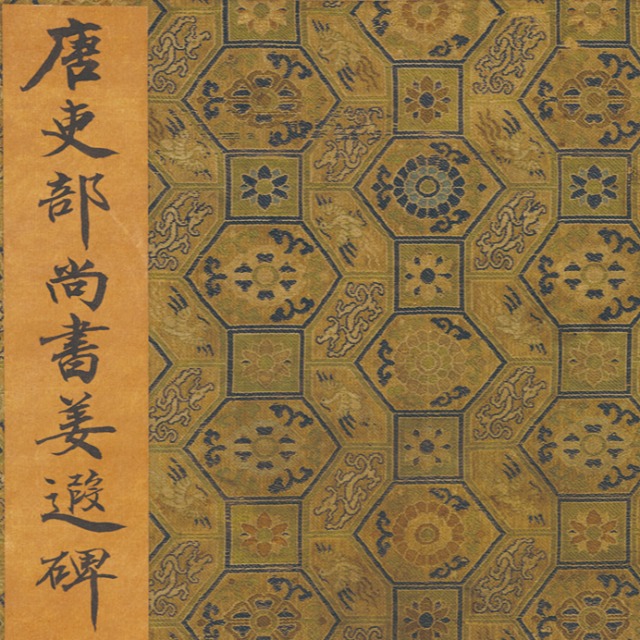 唐吏部尚書姜遐碑